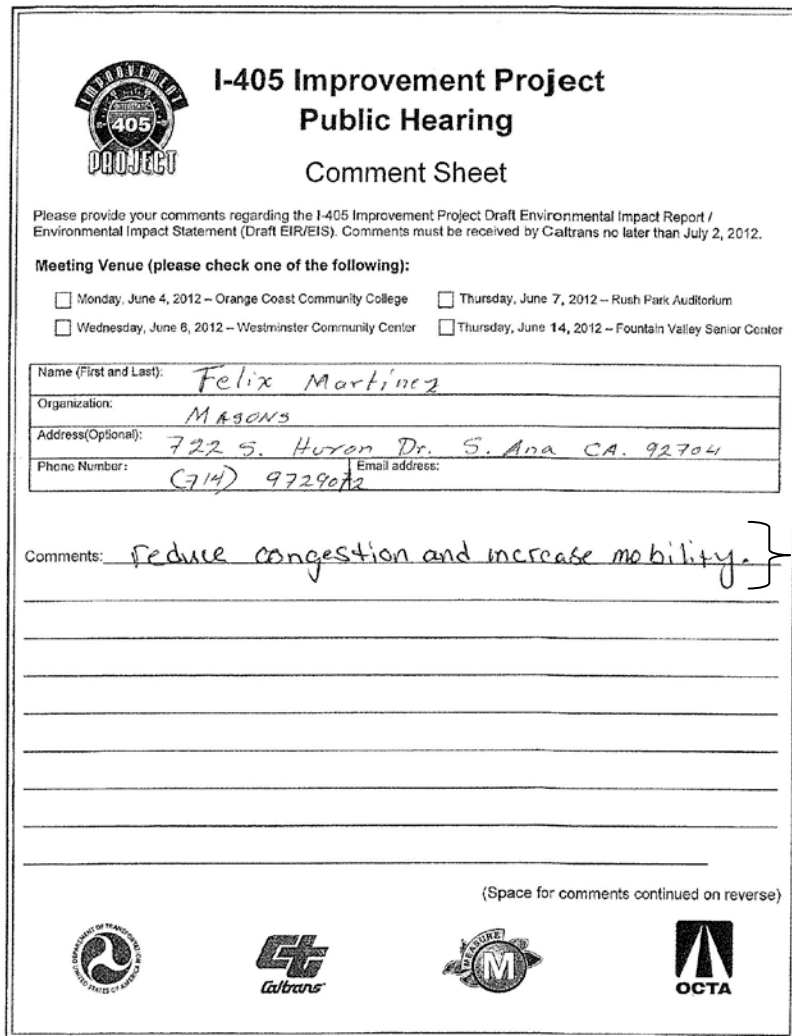 IMPROVEMENT
INTERSTATE
405
PROJECT
I-405 Improvement Project
Public Hearing
Comment Sheet
Please provide your comments regarding the I-405 Improvement Project Draft Environmental Impact Report /
Environmental Impact Statement (Draft EIR/EIS). Comments must be received by Caltrans no later than July 2, 2012.
Meeting Venue (please check one of the following):
Monday, June 4, 2012 – Orange Coast Community College
Thursday, June 7, 2012 – Rush Park Auditorium
Wednesday, June 6, 2012 – Westminster Community Center
Thursday, June 14, 2012 – Fountain Valley Senior Center
Name (First and Last): Felix Martinez
Organization: MASONS
Address(Optional): 722 S. Huron Dr. S. Ana CA. 92704
Phone Number: (714) 9729072 Email address:
Comments: reduce congestion and increase mobility.
(Space for comments continued on reverse)
DEPARTMENT OF TRANSPORTATION
UNITED STATES OF AMERICA
Ct
Caltrans
MEASURE
M
OCTA